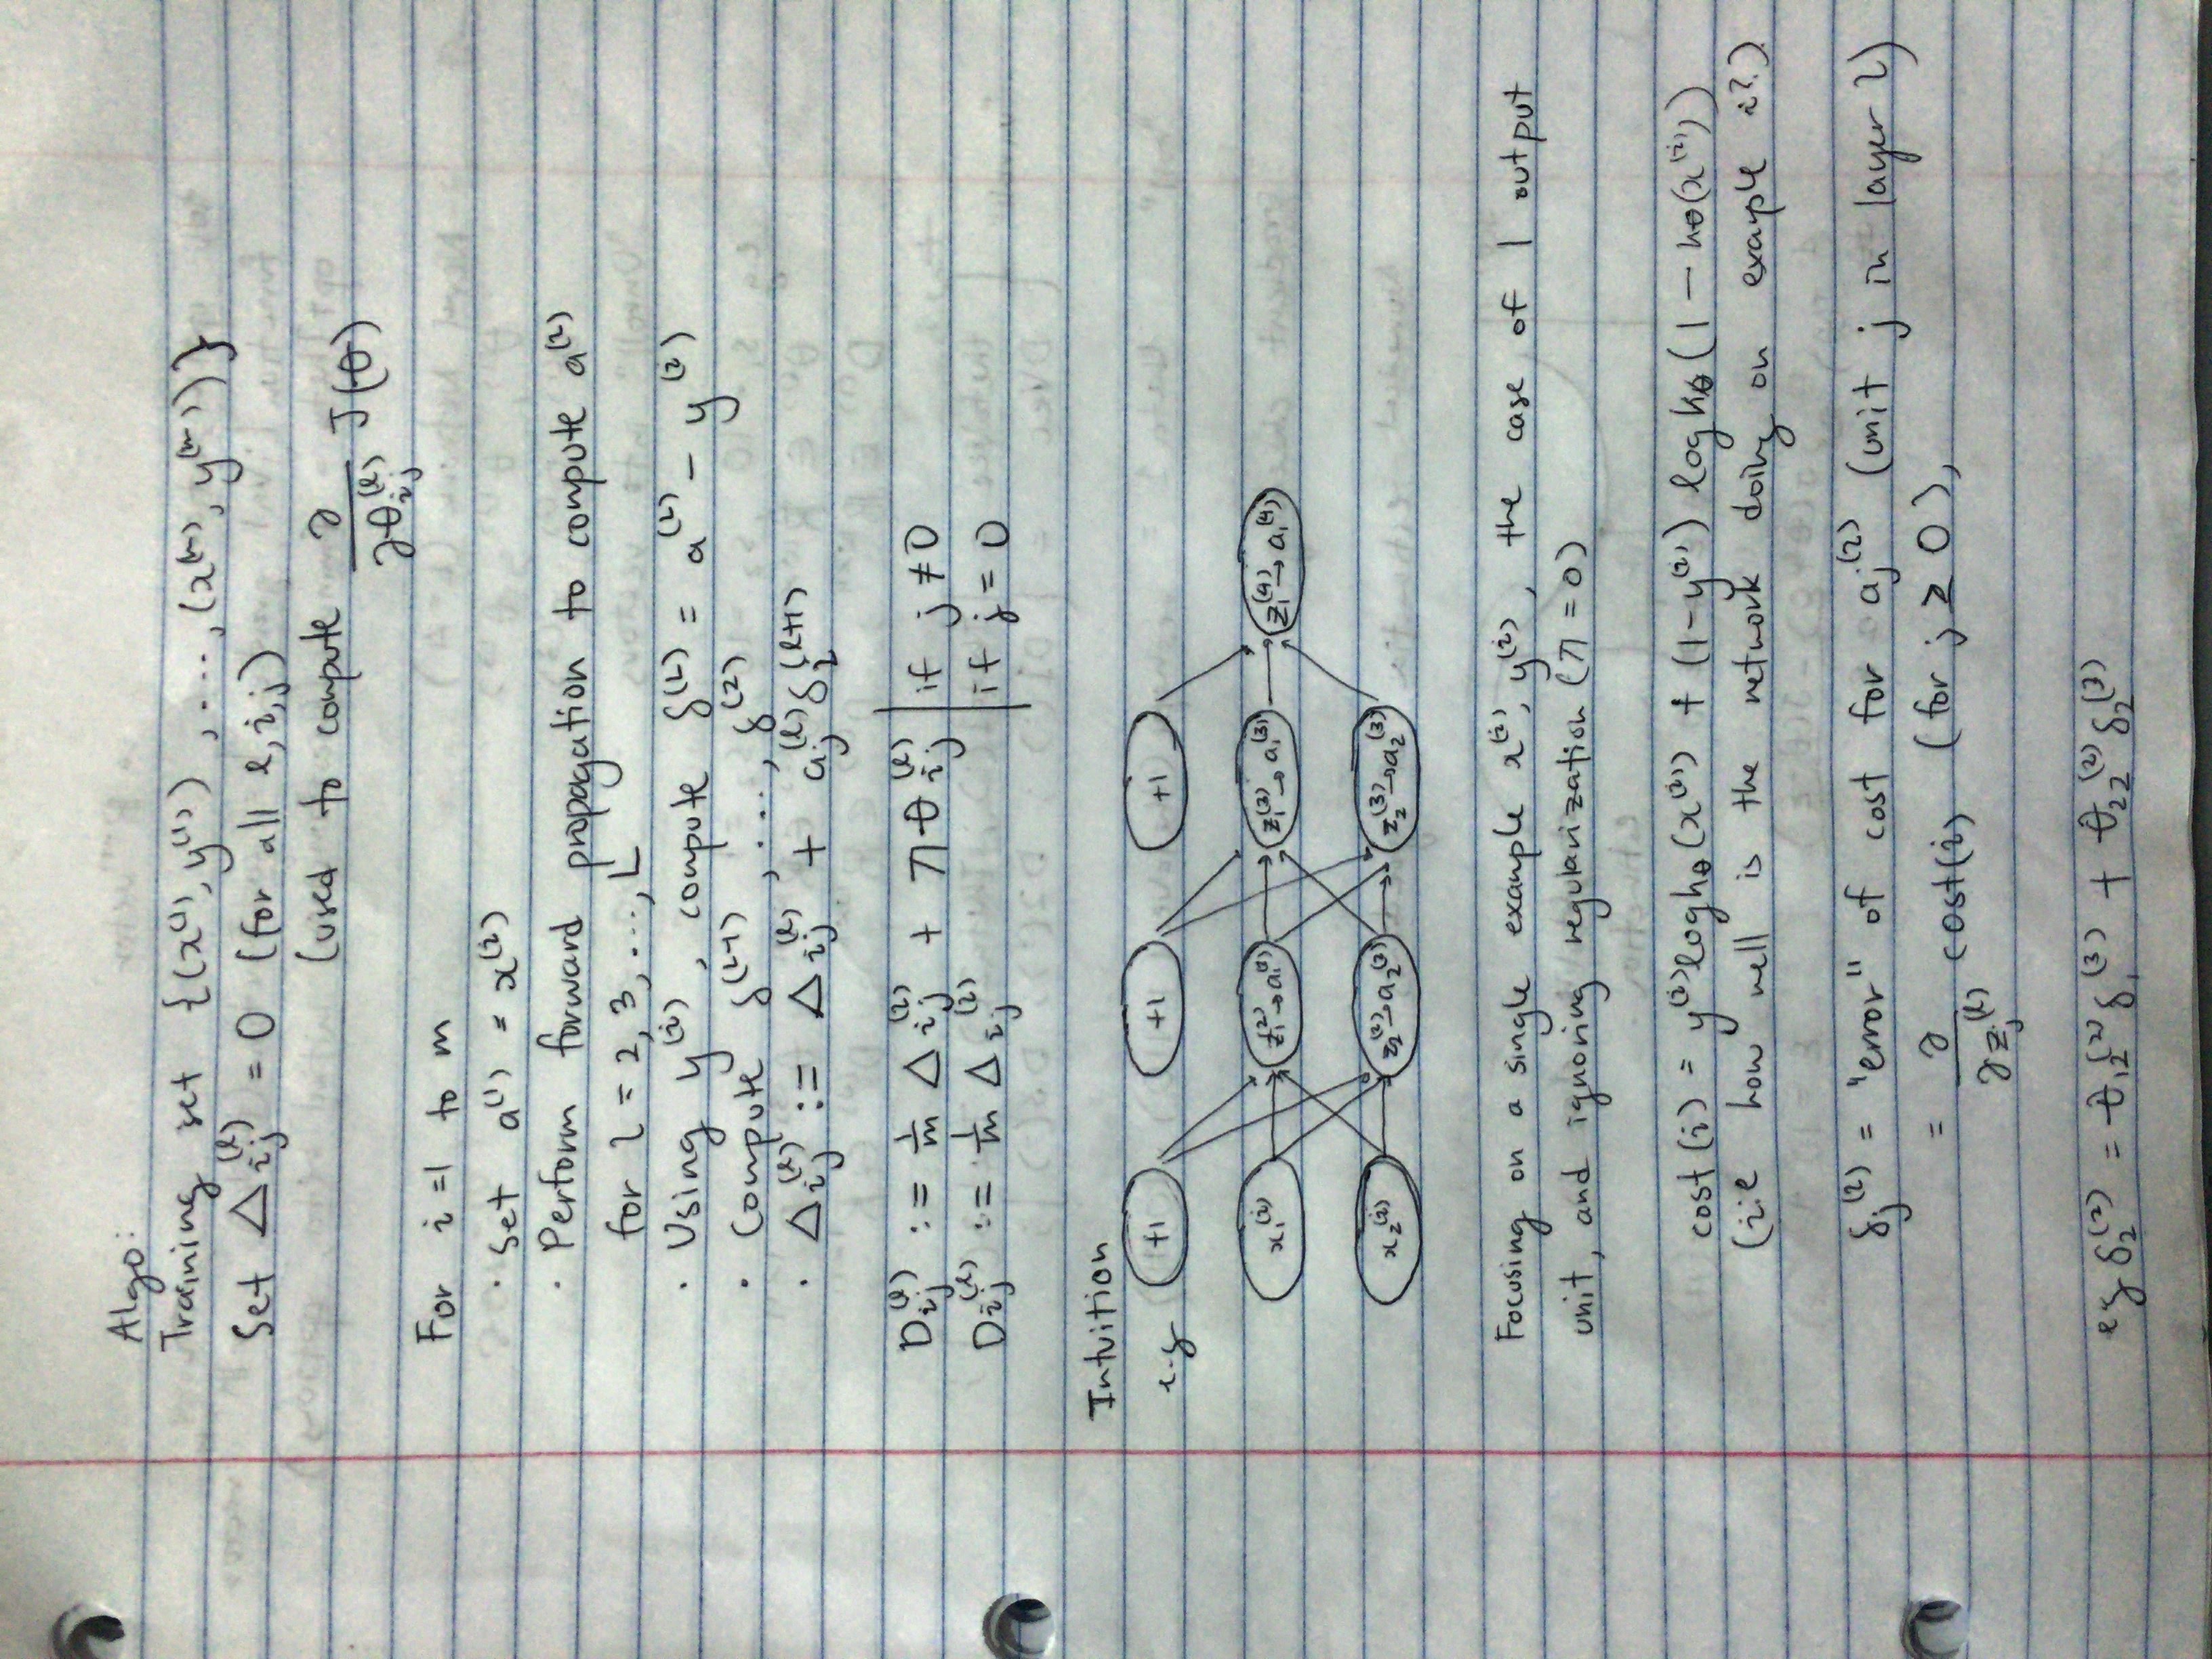 Algo:
Training set {(x⁽¹⁾, y⁽¹⁾), ...., (x⁽ᵐ⁾, y⁽ᵐ⁾)}
Set Δij⁽ˡ⁾ = 0 (for all l, i, j)
(used to compute ∂/∂θij⁽ˡ⁾ J(θ)
For i = 1 to m
· Set a⁽¹⁾ = x⁽ⁱ⁾
· Perform forward propagation to compute a⁽ˡ⁾
for l = 2, 3, ..., L
· Using y⁽ⁱ⁾, compute δ⁽ᴸ⁾ = a⁽ᴸ⁾ - y⁽ⁱ⁾
· Compute δ⁽ᴸ⁻¹⁾, ..., δ⁽²⁾
· Δij⁽ˡ⁾ := Δij⁽ˡ⁾ + aj⁽ˡ⁾ δi⁽ˡ⁺¹⁾
Dij⁽ˡ⁾ := 1/m Δij⁽ˡ⁾ + λθij⁽ˡ⁾ | if j ≠ 0
Dij⁽ˡ⁾ := 1/m Δij⁽ˡ⁾ | if j = 0
Intuition
e.g +1 +1 +1
x₁⁽ⁱ⁾ z₁⁽²⁾→a₁⁽²⁾ z₁⁽³⁾→a₁⁽³⁾ z₁⁽⁴⁾→a₁⁽⁴⁾
x₂⁽ⁱ⁾ z₂⁽²⁾→a₂⁽²⁾ z₂⁽³⁾→a₂⁽³⁾
Focusing on a single example x⁽ⁱ⁾, y⁽ⁱ⁾, the case of 1 output
unit, and ignoring regularization (λ = 0)
cost(i) = y⁽ⁱ⁾ log hθ(x⁽ⁱ⁾) + (1 - y⁽ⁱ⁾) log hθ(1 - hθ(x⁽ⁱ⁾))
(i.e how well is the network doing on example i?)
δj⁽ˡ⁾ = "error" of cost for aj⁽ˡ⁾ (unit j in layer l)
= ∂/∂zj⁽ˡ⁾ cost(i) (for j ≥ 0),
eg δ₂⁽²⁾ = θ₁₂⁽²⁾ δ₁⁽³⁾ + θ₂₂⁽²⁾ δ₂⁽³⁾